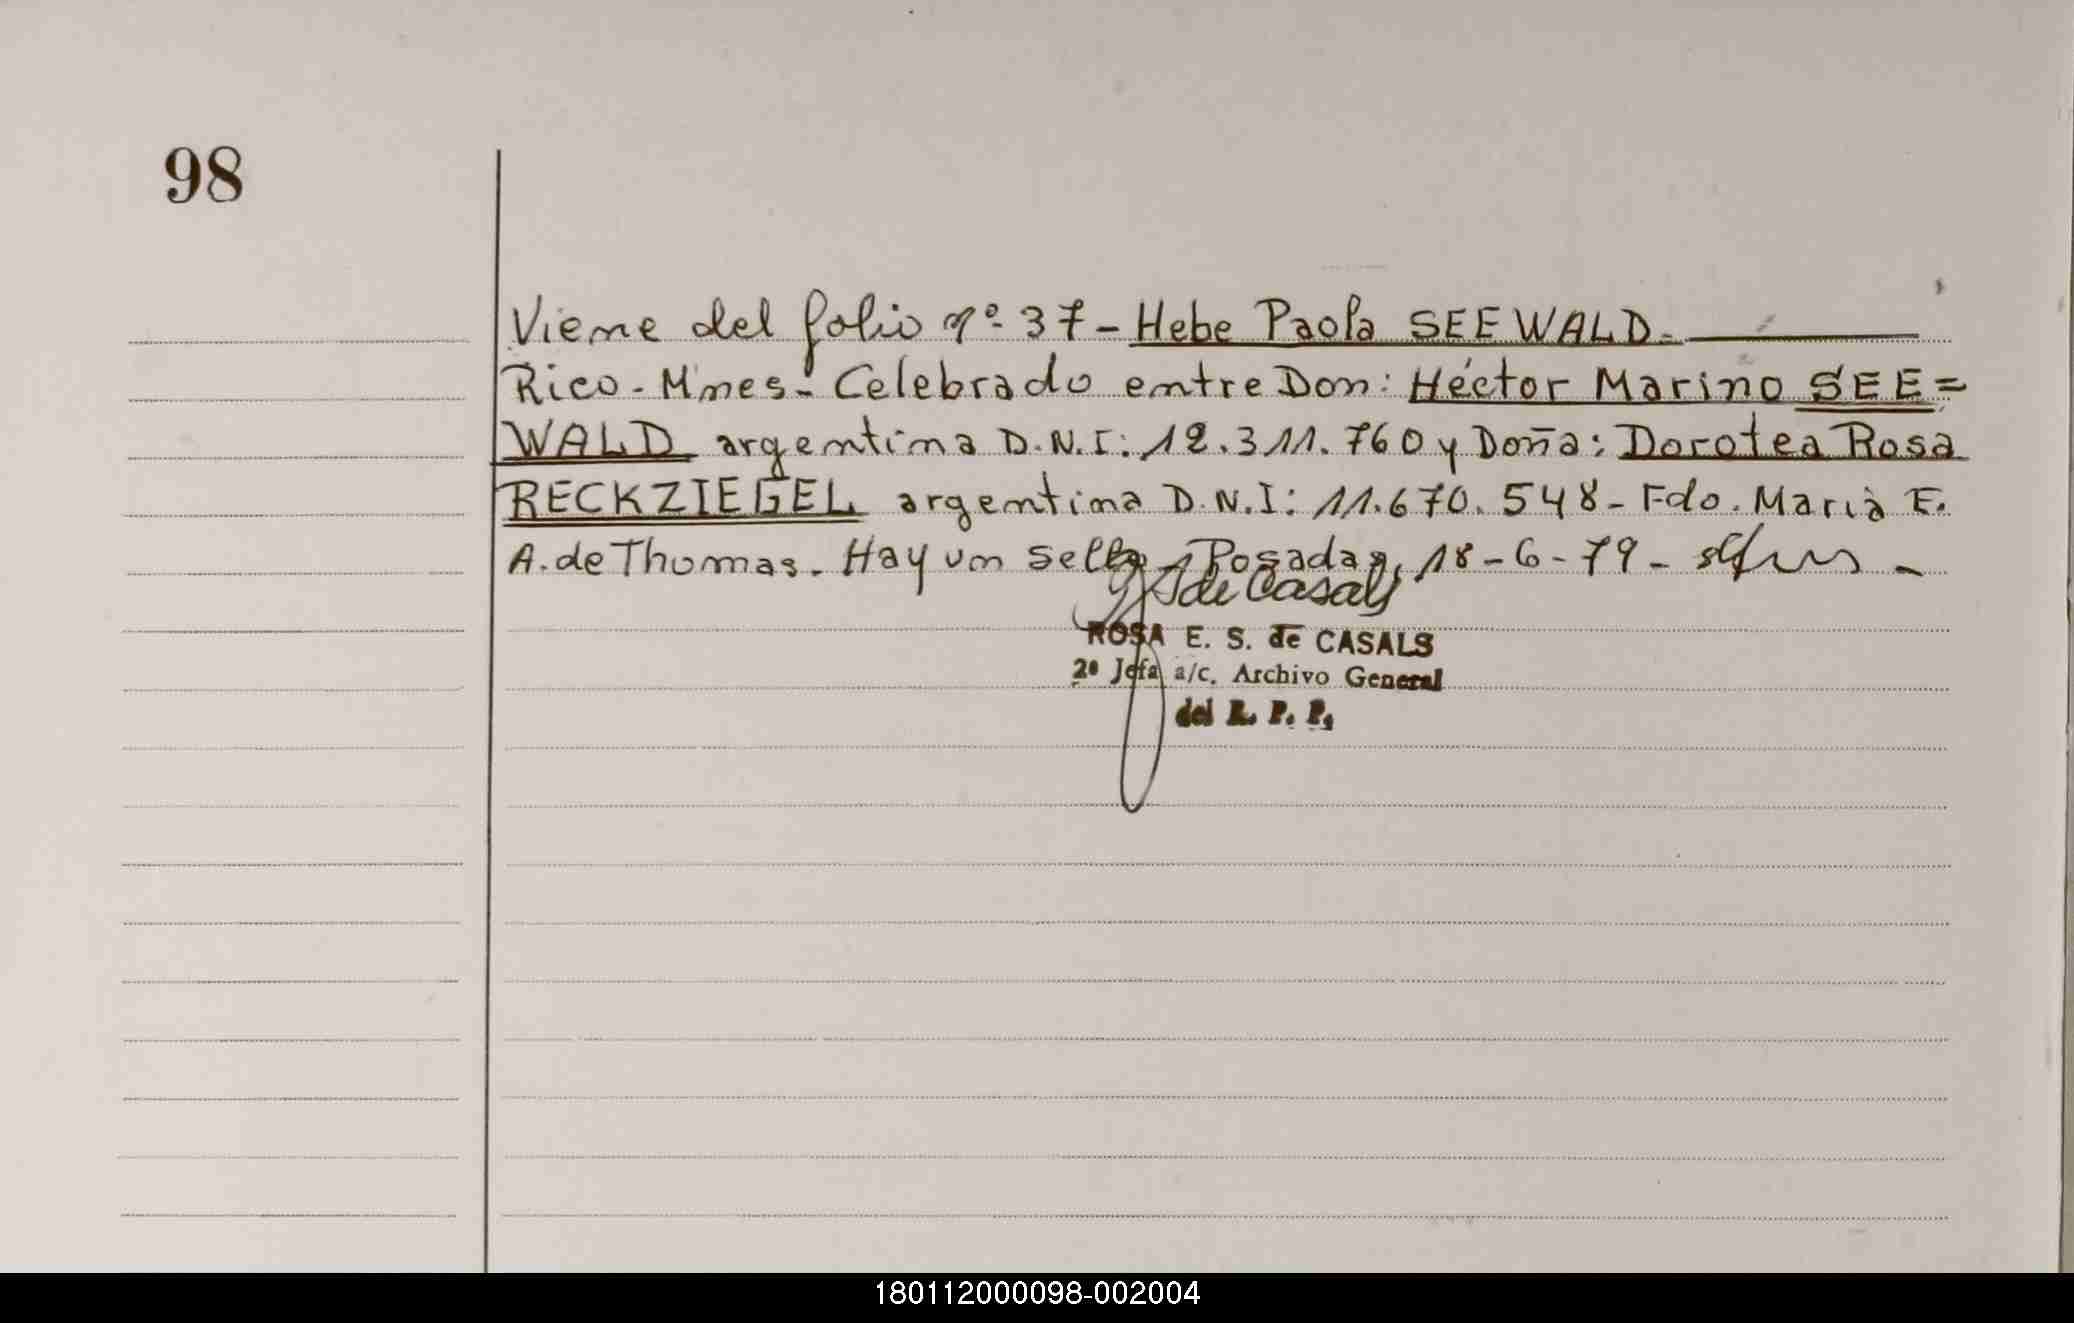 98
Viene del folio nº 37 - Hebe Paola SEEWALD.
Rico - Mnes - Celebrado entre Don: Héctor Marino SEE=
WALD argentina D.N.I: 12.311.760 y Doña: Dorotea Rosa
RECKZIEGEL argentina D.N.I: 11.670.548 - Fdo. Marià E.
A. de Thomas. Hay un sello - Posadas, 18-6-79 -
de Casals
ROSA E. S. de CASALS
2º Jefa a/c. Archivo General
del R. P. P.
180112000098-002004